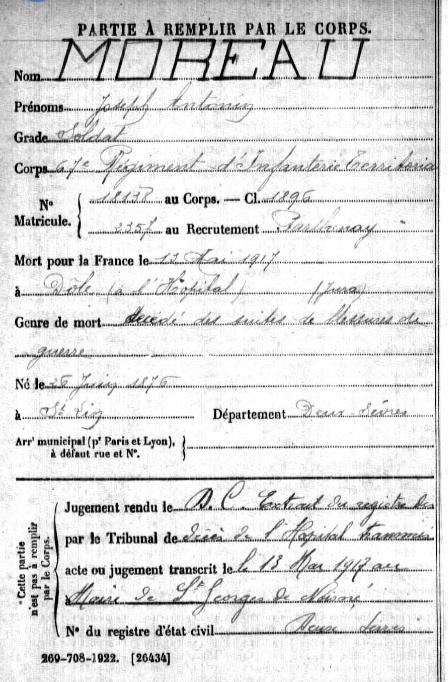 PARTIE À REMPLIR PAR LE CORPS.
Nom MOREAU
Prénoms Joseph Antonin
Grade Soldat
Corps 67e Régiment d'Infanterie Territoria
N° Matricule. { 18138 au Corps. — Cl. 1896
2257 au Recrutement Parthenay
Mort pour la France le 13 Mai 1917
à Dôle (à l'Hopital) (Jura)
Genre de mort Décédé des suites de blessures de
guerre
Né le Juin 1876
à St Lin Département Deux Sèvres
Arrt municipal (pr Paris et Lyon), à défaut rue et N°. }
Cette partie n'est pas à remplir par le Corps.
Jugement rendu le D.C. Extrait du registre des
par le Tribunal de décès de l'Hopital transmis
acte ou jugement transcrit le le 13 Mai 1917 au
Maire de St Georges de Noisné
N° du registre d'état civil Deux Sèvres
269-708-1922. [26434]